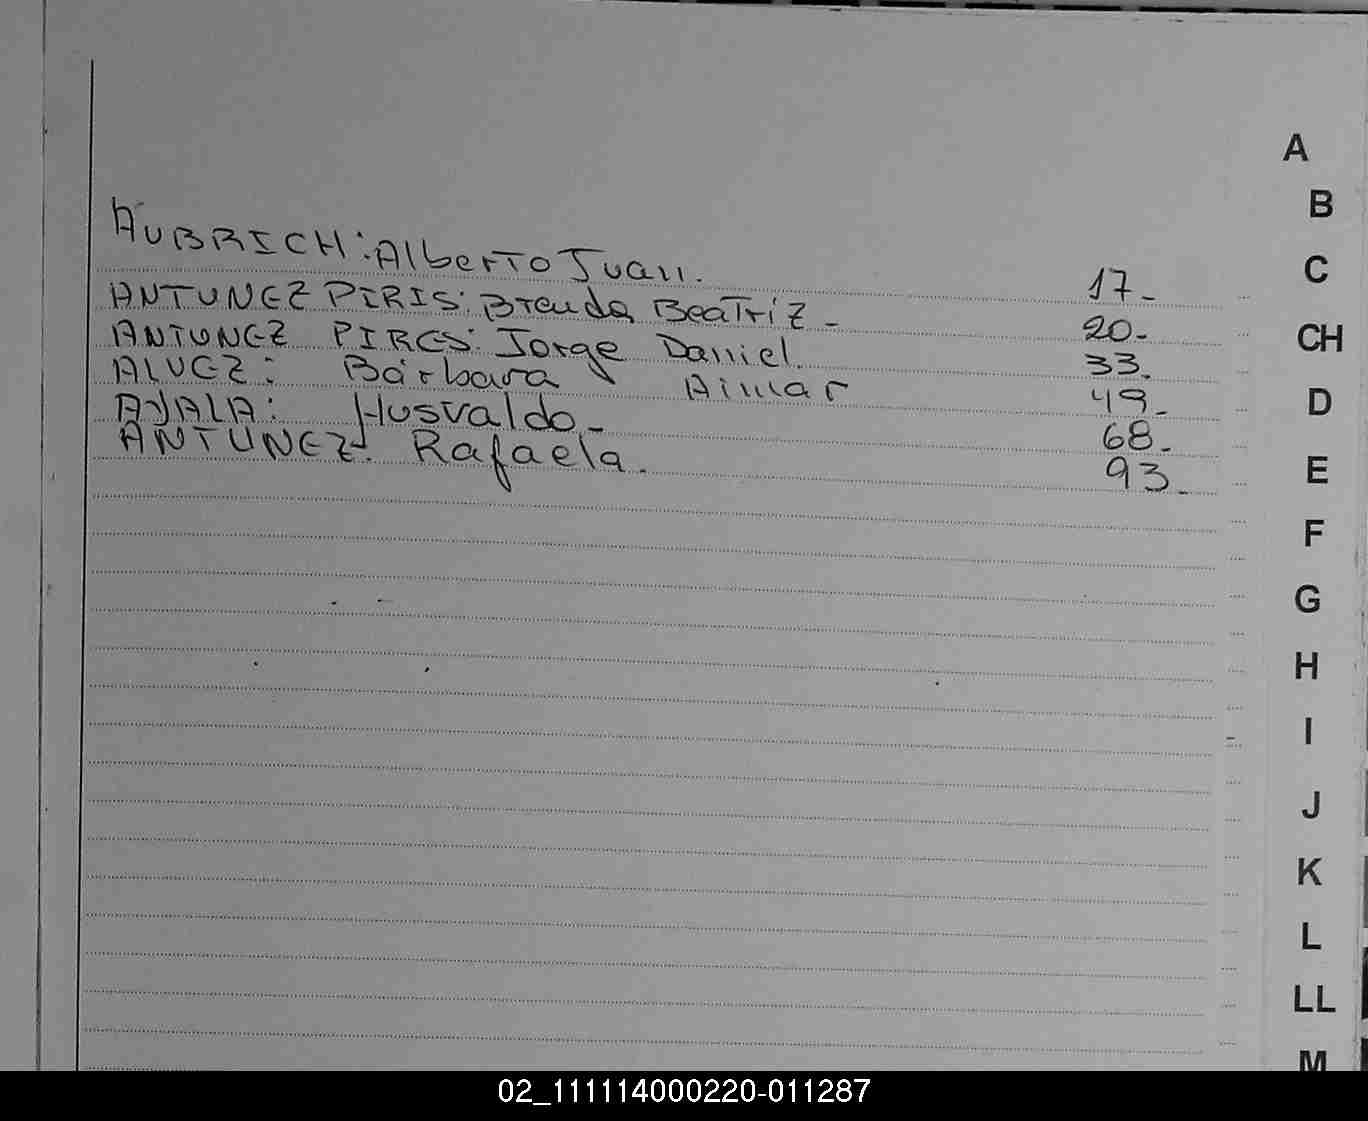 AUBRICH: Alberto Juan. 17-
ANTUNEZ PIRIS: Brenda Beatriz - 20-
ANTUNEZ PIRES: Jorge Daniel. 33.
ALVEZ: Bárbara Aimar 49-
AYALA: Husvaldo - 68-
ANTUNEZ: Rafaela. 93-
A
B
C
CH
D
E
F
G
H
I
J
K
L
LL
M
02_111114000220-011287